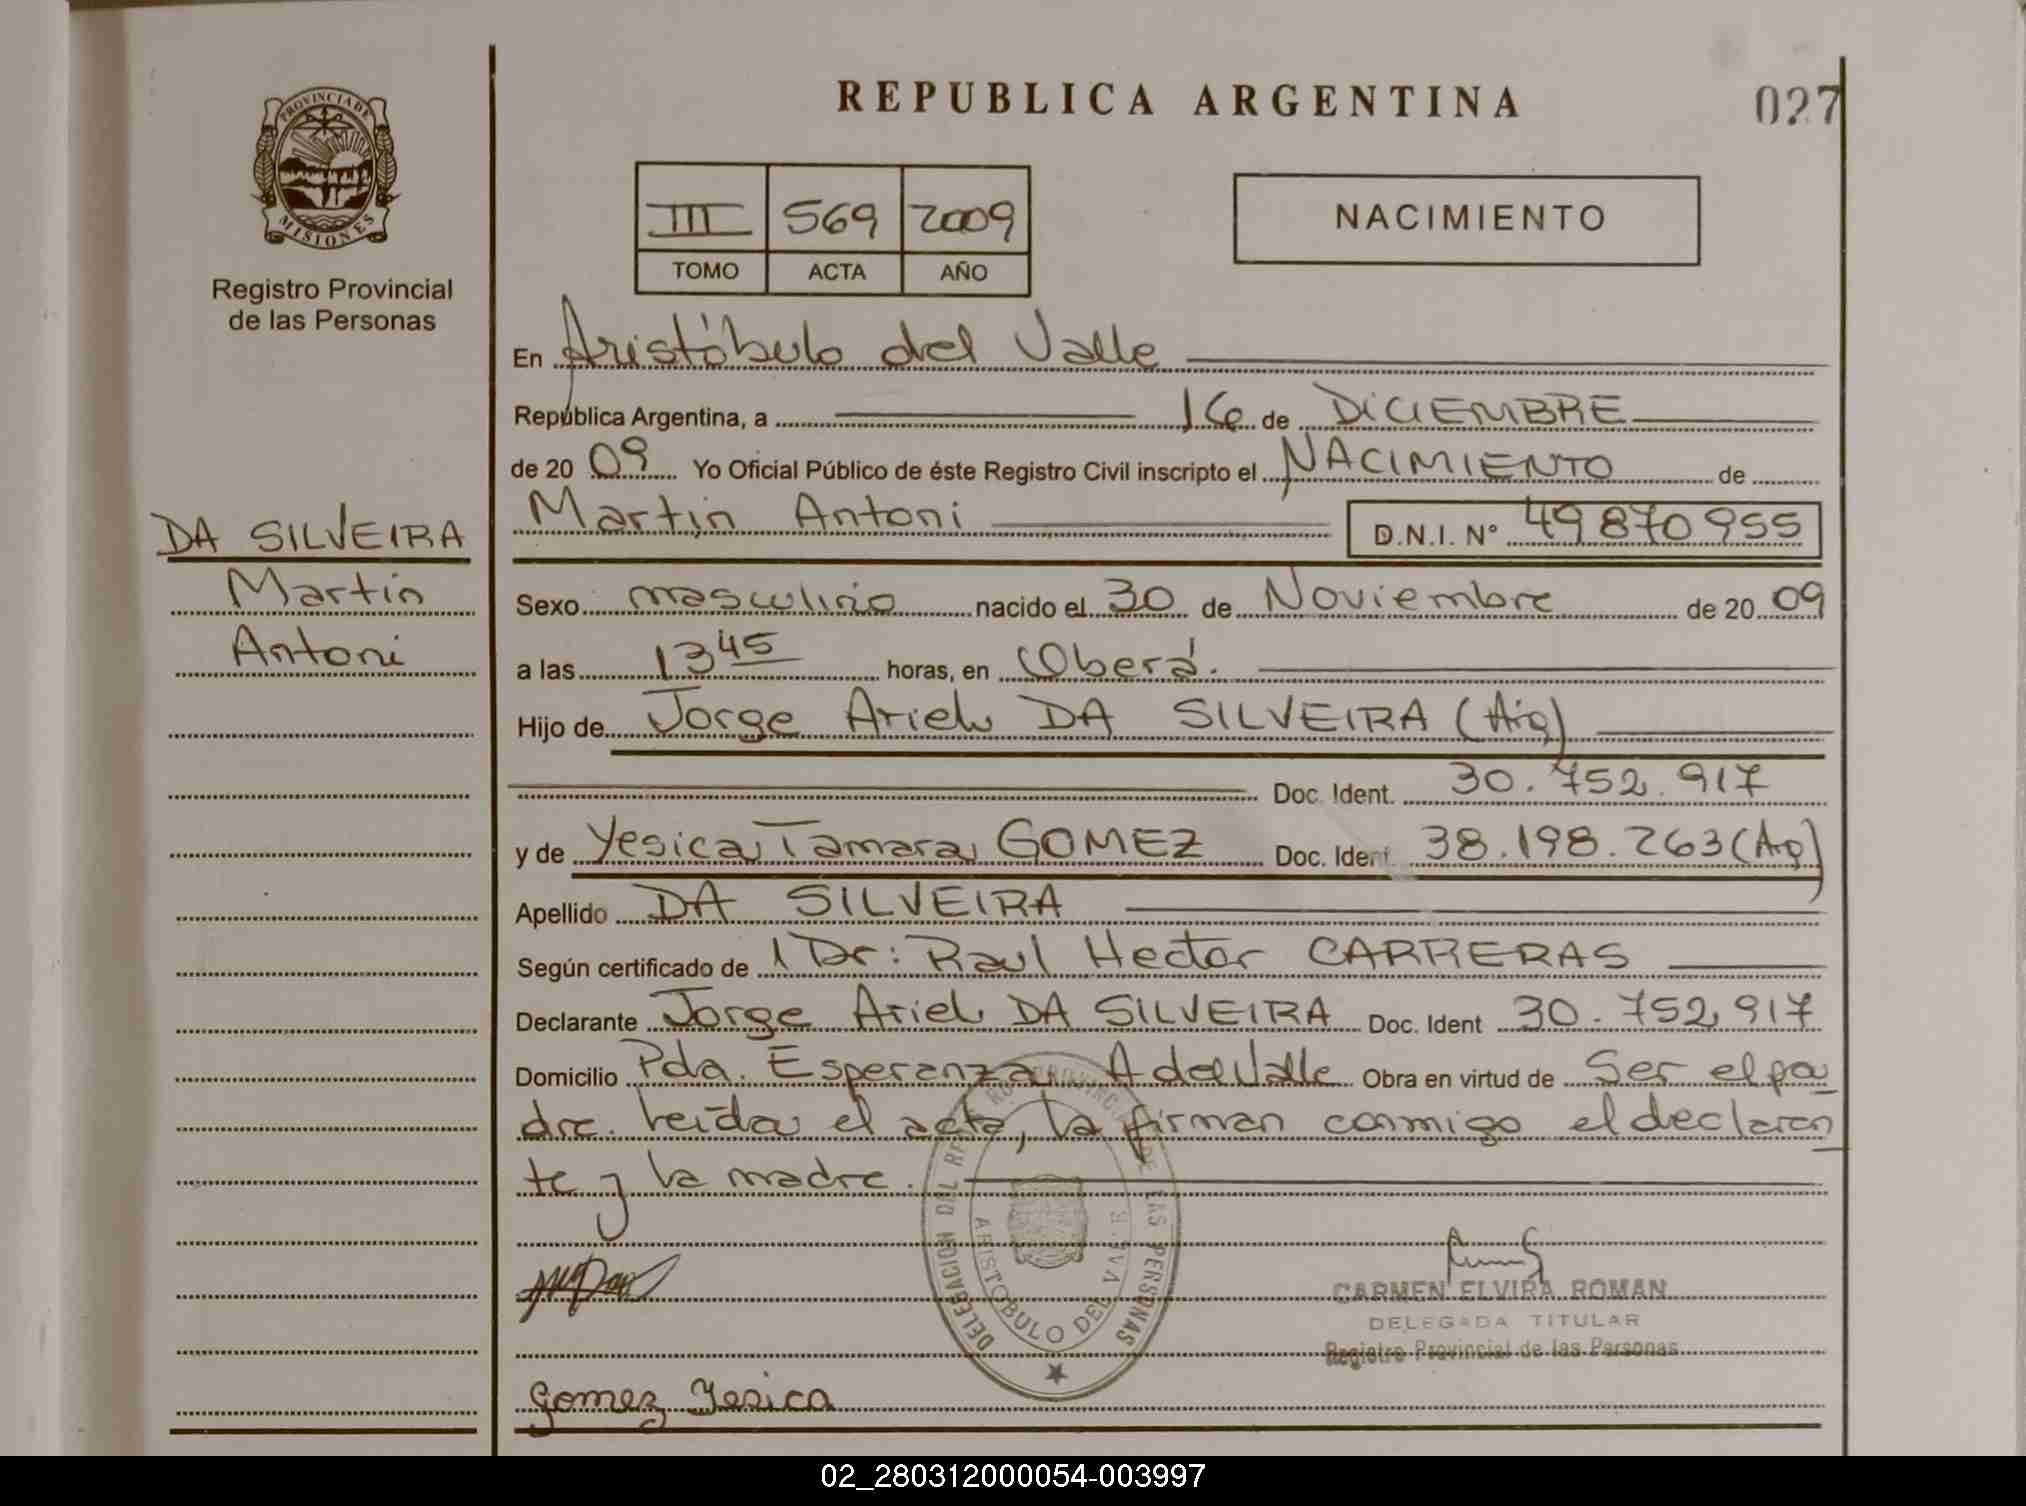 REPUBLICA ARGENTINA
027
PROVINCIA DE
MISIONES
Registro Provincial
de las Personas
III 569 2009
TOMO ACTA AÑO
NACIMIENTO
En Aristóbulo del Valle
República Argentina, a 16 de DICIEMBRE
de 20 09 Yo Oficial Público de éste Registro Civil inscripto el NACIMIENTO de
Martin Antoni D.N.I. N° 49 870 955
DA SILVEIRA
Martin
Antoni
Sexo masculino nacido el 30 de Noviembre de 20 09
a las 13 45 horas, en Oberá.
Hijo de Jorge Ariel DA SILVEIRA (Arg)
Doc. Ident. 30.752.917
y de Yesica Tamara GOMEZ Doc. Ident. 38.198.263 (Arg)
Apellido DA SILVEIRA
Según certificado de Dr: Raul Hector CARRERAS
Declarante Jorge Ariel DA SILVEIRA Doc. Ident 30.752.917
Domicilio Pda. Esperanza A del Valle Obra en virtud de Ser el pa
dre. leida el acta, la firman conmigo el declaran
te y la madre.
DELEGACION DEL REG PROVINCIAL DE LAS PERSONAS
ARISTOBULO DEL VALLE
CARMEN ELVIRA ROMAN
DELEGADA TITULAR
Registro Provincial de las Personas
Gomez Yesica
02_280312000054-003997